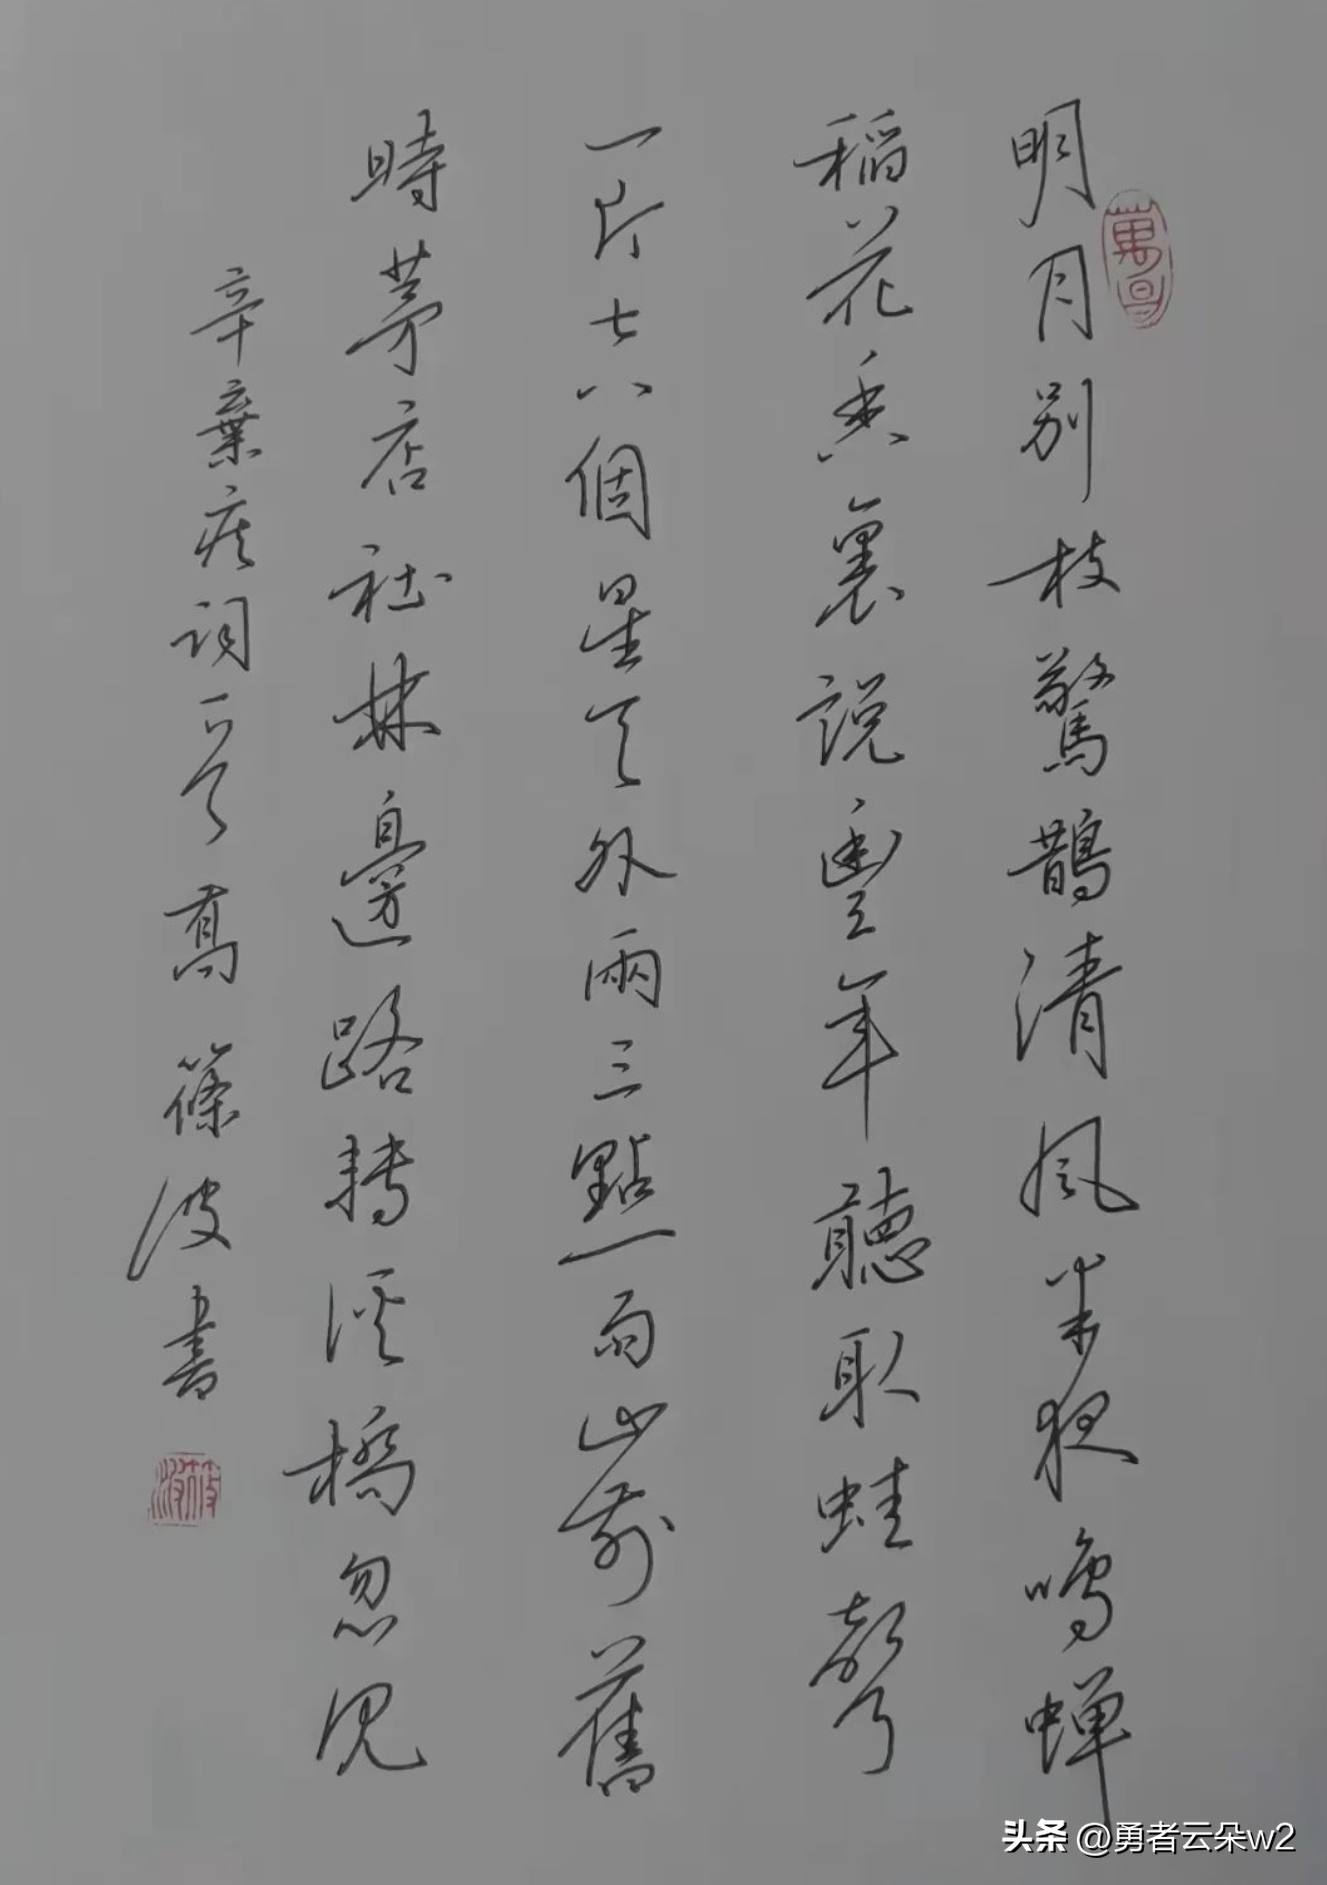 明月别枝驚鵲清風半夜鳴蝉
稻花香裏説豐年聽取蛙聲
一片七八個星天外兩三點雨山前舊
時茅店社林邊路轉溪橋忽見
辛棄疾詞一首 篠波書
筱波
头条 @勇者云朵w2